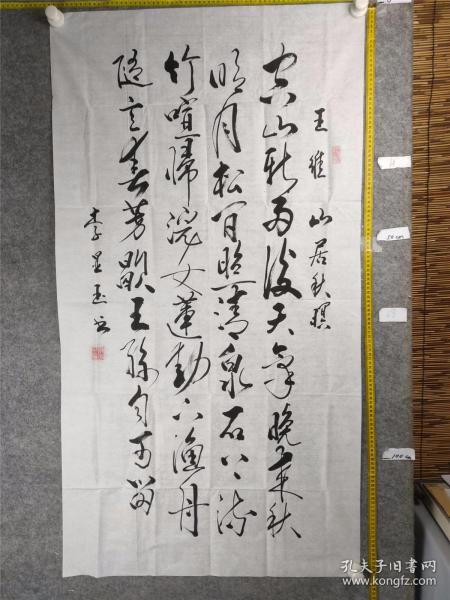 王維 山居秋暝
空山新雨後天氣晚来秋
明月松间照清泉石上流
竹喧歸浣女蓮動下漁舟
随意春芳歇王孫自可留
李星玉书
50cm
100cm
孔夫子旧书网
www.kongfz.com